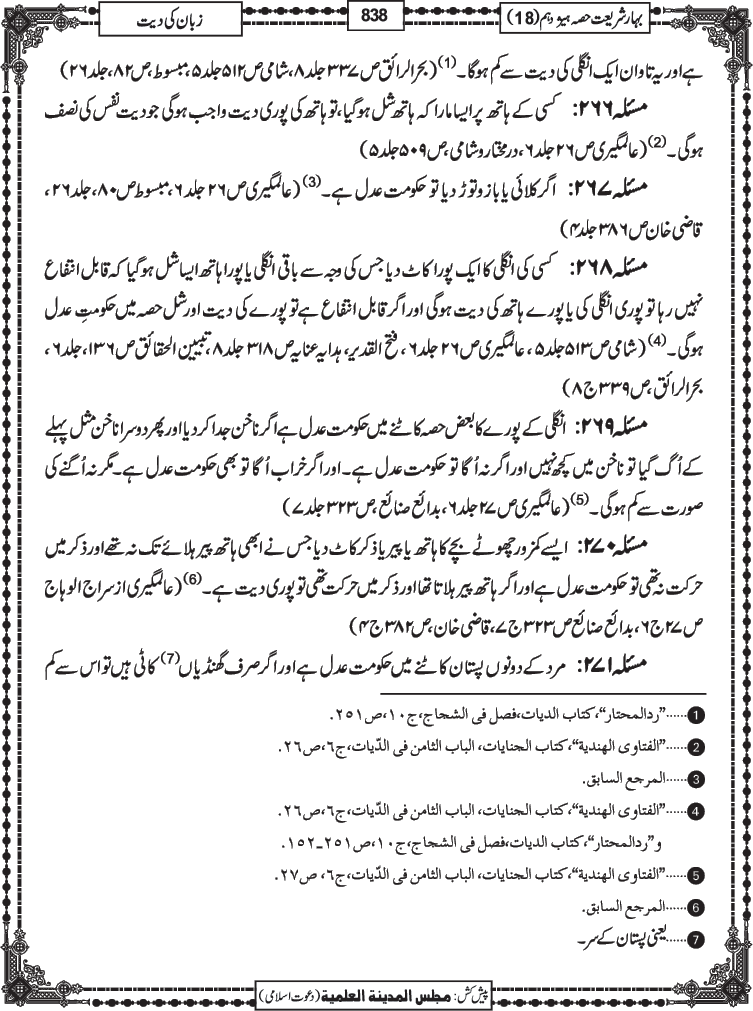 بہار شریعت حصہ ہیژدہم (18)
838
زبان کی دیت
ہے اور یہ تاوان ایک انگلی کی دیت سے کم ہوگا۔(1) (بحر الرائق ص۳۳۷ جلد۸، شامی ص۵۱۲ جلد۵، مبسوط، ص۸۲، جلد۲۶)
مسئلہ ۲۶۶: کسی کے ہاتھ پر ایسا مارا کہ ہاتھ شل ہوگیا، تو ہاتھ کی پوری دیت واجب ہوگی جو دیت نفس کی نصف
ہوگی۔(2) (عالمگیری ص۲۶ جلد۶، درمختار و شامی، ص۵۰۹ جلد۵)
مسئلہ ۲۶۷: اگر کلائی یا بازو توڑ دیا تو حکومت عدل ہے۔(3) (عالمگیری ص۲۶ جلد۶، مبسوط ص۸۰، جلد۲۶،
قاضی خان ص۳۸۶ جلد۴)
مسئلہ ۲۶۸: کسی کی انگلی کا ایک پورا کاٹ دیا جس کی وجہ سے باقی انگلی یا پورا ہاتھ ایسا شل ہوگیا کہ قابل انتفاع
نہیں رہا تو پوری انگلی کی یا پورے ہاتھ کی دیت ہوگی اور اگر قابل انتفاع ہے تو پورے کی دیت اور شل حصہ میں حکومتِ عدل
ہوگی۔(4) (شامی ص۵۱۳ جلد۵، عالمگیری ص۲۶ جلد۶، فتح القدیر، ہدایہ عنایہ ص۳۱۸ جلد۸، تبیین الحقائق ص۱۳۶، جلد۶،
بحر الرائق، ص۳۳۹ ج۸)
مسئلہ ۲۶۹: انگلی کے پورے کا بعض حصہ کاٹنے میں حکومت عدل ہے اگر ناخن جدا کر دیا اور پھر دوسرا ناخن مثل پہلے
کے اُگ گیا تو ناخن میں کچھ نہیں اور اگر نہ اُگا تو حکومت عدل ہے۔ اور اگر خراب اُگا تو بھی حکومت عدل ہے۔ مگر نہ اُگنے کی
صورت سے کم ہوگی۔(5) (عالمگیری ص۲۷ جلد۶، بدائع صنائع، ص۳۲۳ جلد۷)
مسئلہ ۲۷۰: ایسے کمزور چھوٹے بچے کا ہاتھ یا پیر یا ذکر کاٹ دیا جس نے ابھی ہاتھ پیر ہلائے تک نہ تھے اور ذکر میں
حرکت نہ تھی تو حکومت عدل ہے اور اگر ہاتھ پیر ہلاتا تھا اور ذکر میں حرکت تھی تو پوری دیت ہے۔(6) (عالمگیری از سراج الوہاج
ص۲۷ ج۶، بدائع صنائع ص۳۲۳ ج۷، قاضی خان، ص۳۸۲ ج۴)
مسئلہ ۲۷۱: مرد کے دونوں پستان کاٹنے میں حکومت عدل ہے اور اگر صرف گھنڈیاں(7) کاٹی ہیں تو اس سے کم
1......”ردالمحتار“، کتاب الدیات، فصل فی الشجاج، ج۱۰، ص۲۵۱.
2......”الفتاوی الهندیة“، کتاب الجنایات، الباب الثامن فی الدّیات، ج۶، ص۲۶.
3......المرجع السابق.
4......”الفتاوی الهندیة“، کتاب الجنایات، الباب الثامن فی الدّیات، ج۶، ص۲۶.
و”ردالمحتار“، کتاب الدیات، فصل فی الشجاج، ج۱۰، ص۲۵۱ـ۱۵۲.
5......”الفتاوی الهندیة“، کتاب الجنایات، الباب الثامن فی الدّیات، ج۶، ص۲۷.
6......المرجع السابق.
7......یعنی پستان کے سر۔
پیش کش: مجلس المدینة العلمیة (دعوت اسلامی)